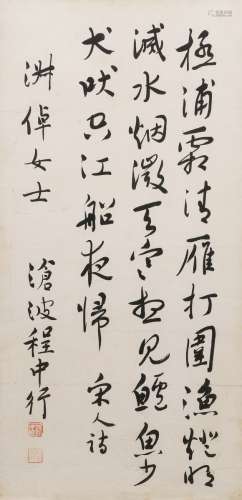 極浦霜清雁打圍漁燈明
滅水烟微天寒想見鱸魚少
犬吠空江船夜歸 宋人詩
淑倬女士 滄波程中行